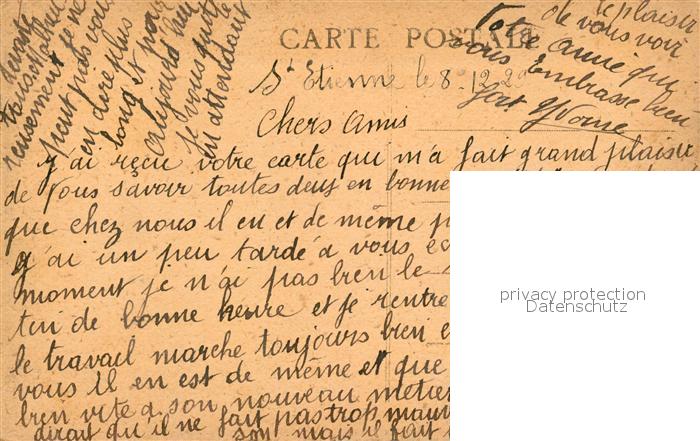 CARTE POSTALE
St Etienne le 8-12-2
Chers Amis
j'ai reçu votre carte qui m'a fait grand plaisir
de vous savoir toutes deux en bonne
que chez nous il en et de même p
j'ai un peu tardé a vous ec
moment je n'ai pas bien le
tin de bonne heure et je rentre
le travail marche toujours bien e
vous il en est de même et que
bien vite a son nouveau metier
dirait qu'il ne fait pas trop mauv
son mais il fait
tous Malheu
reusement je ne
peut pas vous
en dire plus
long et pour
Aujourd hui
je vous quitte
en attendant
le plaisir
de vous voir
Votre Amie qui
vous Embrasse bien
fort Yvonne
privacy protection
Datenschutz